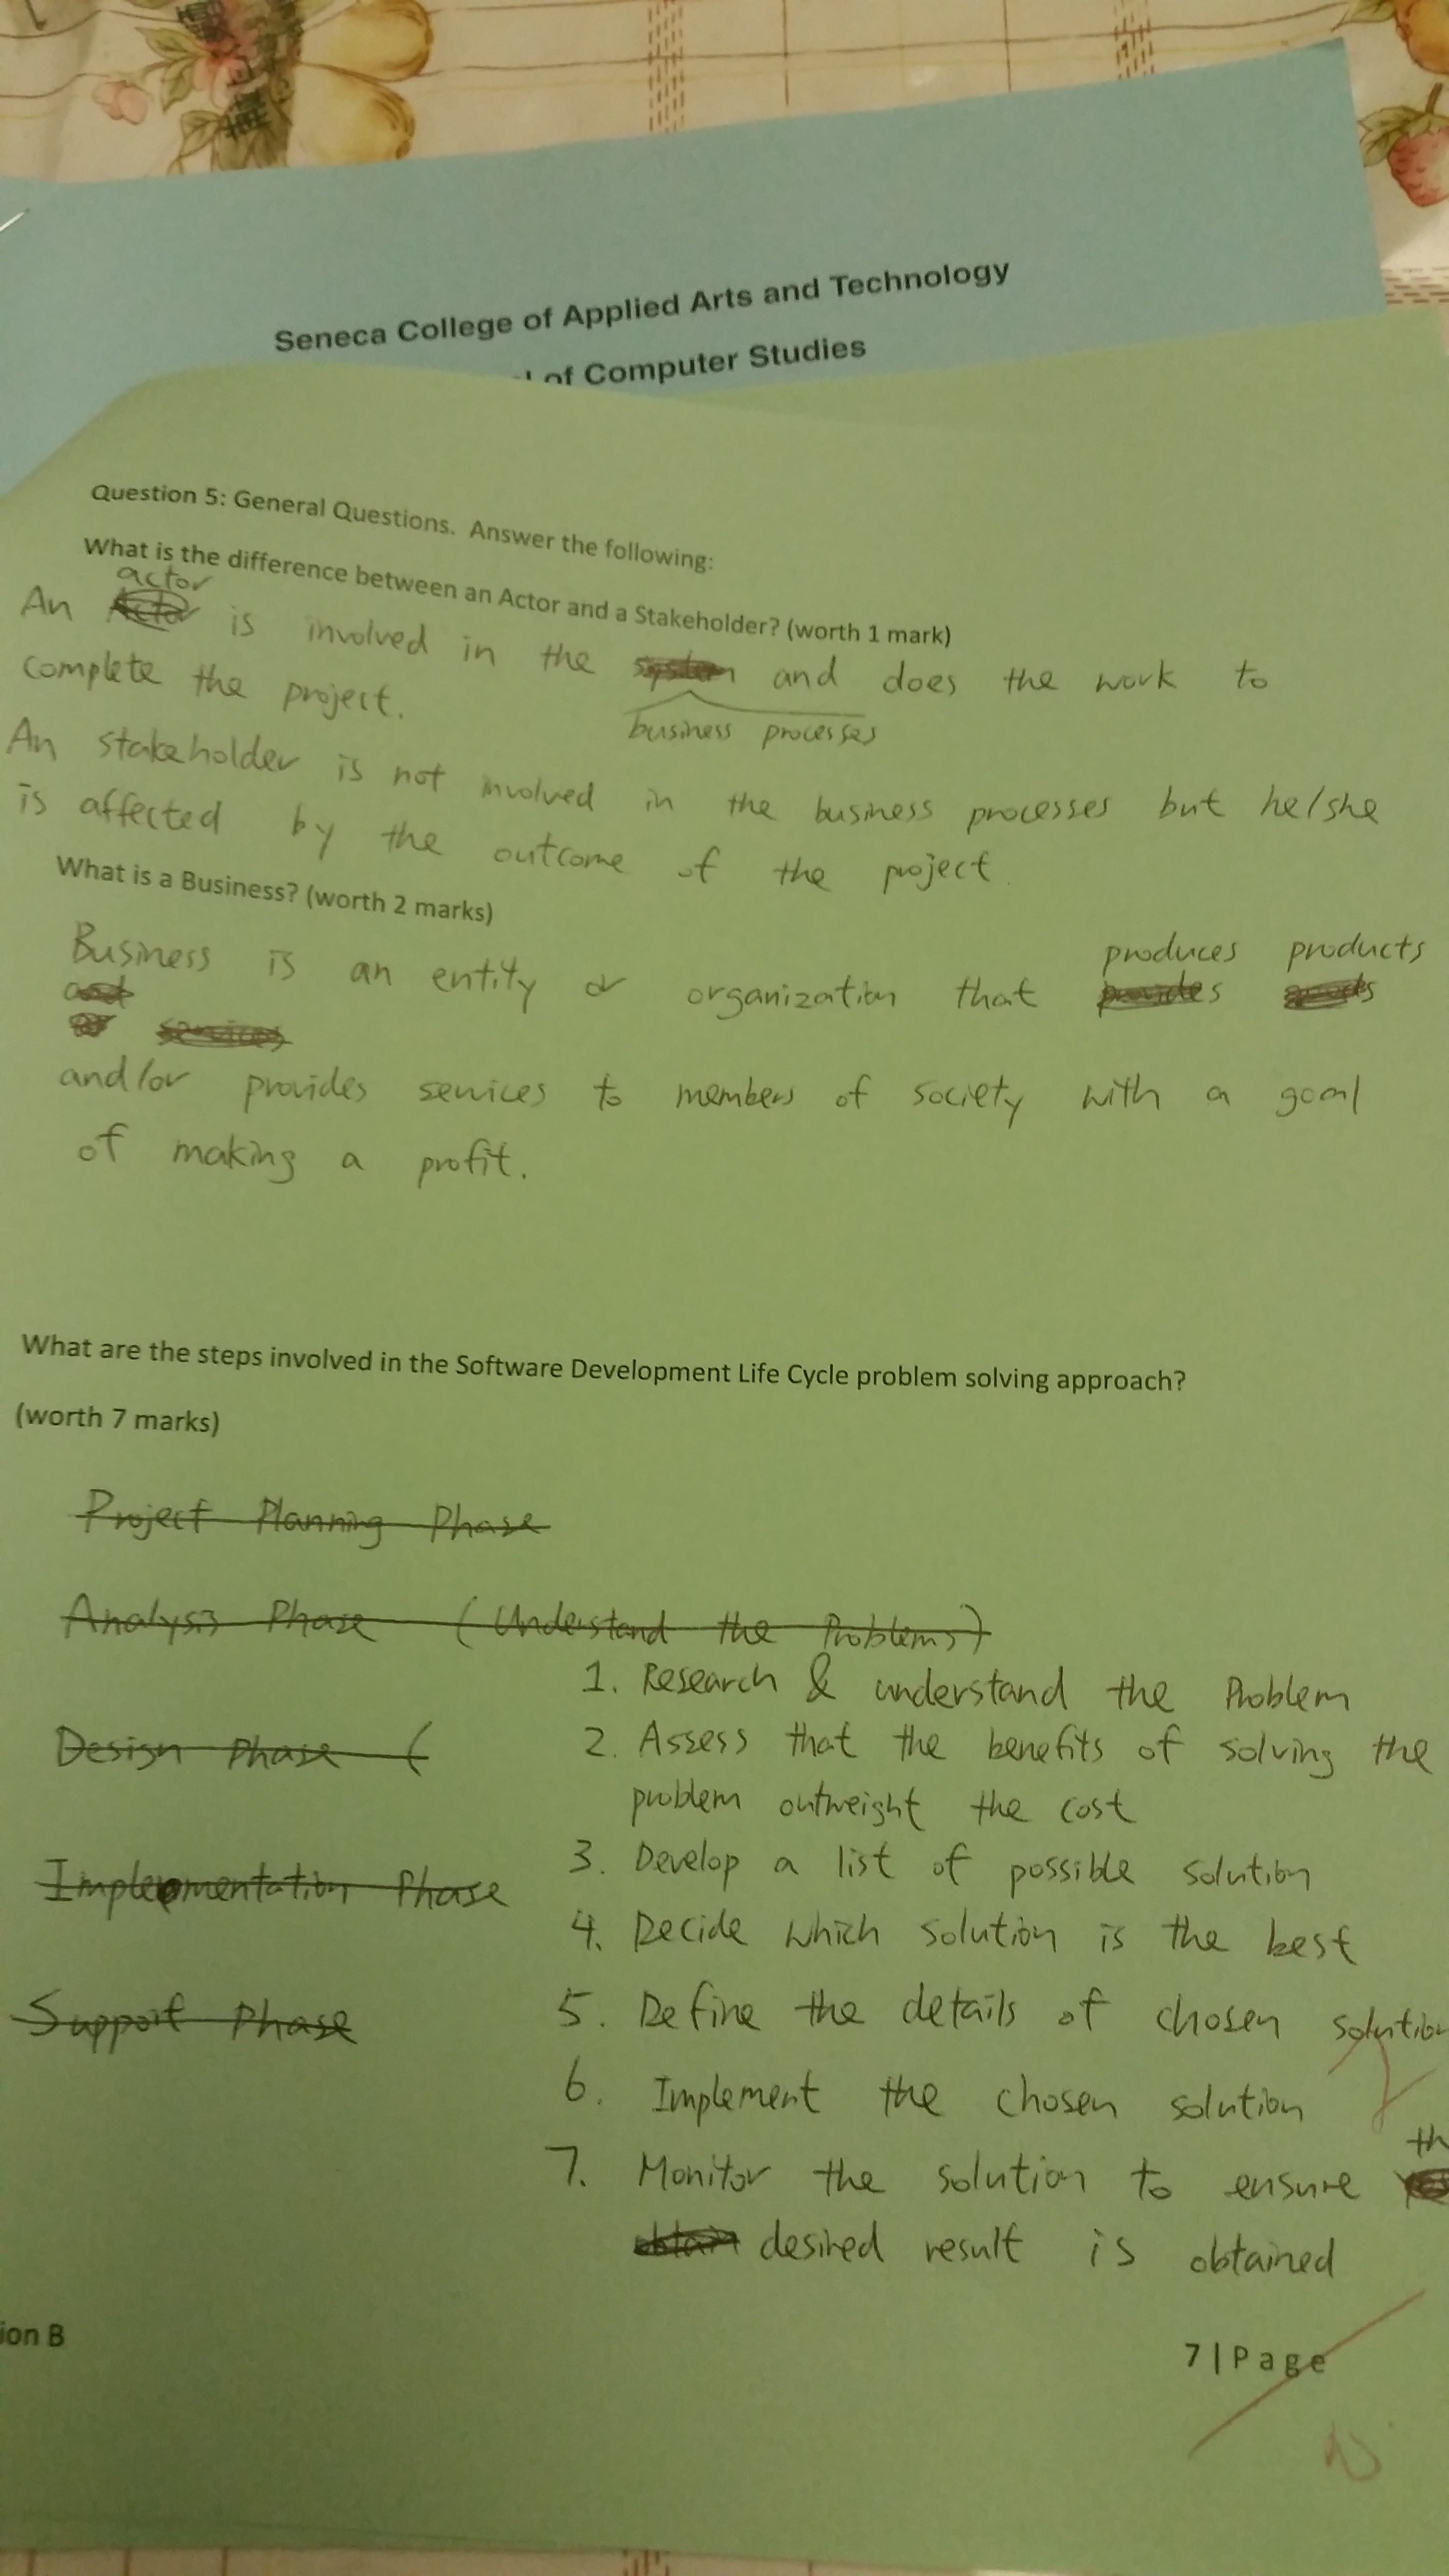 Seneca College of Applied Arts and Technology
of Computer Studies
Question 5: General Questions. Answer the following:
What is the difference between an Actor and a Stakeholder? (worth 1 mark)
actor
An Actor is involved in the system and does the work to
business processes
complete the project.
An stakeholder is not involved in the business processes but he/she
is affected by the outcome of the project.
What is a Business? (worth 2 marks)
produces products
Business is an entity or organization that provides goods
and
or services
and/or provides services to members of society with a goal
of making a profit.
What are the steps involved in the Software Development Life Cycle problem solving approach?
(worth 7 marks)
Project Planning Phase
Analysis Phase (Understand the Problems)
1. Research & understand the Problem
Design Phase (
2. Assess that the benefits of solving the
problem outweight the cost
3. Develop a list of possible solution
Implementation Phase
4. Decide which solution is the best
5. Define the details of chosen solution
Support Phase
6. Implement the chosen solution
th
7. Monitor the solution to ensure
obtain desired result is obtained
ion B
7 | Page